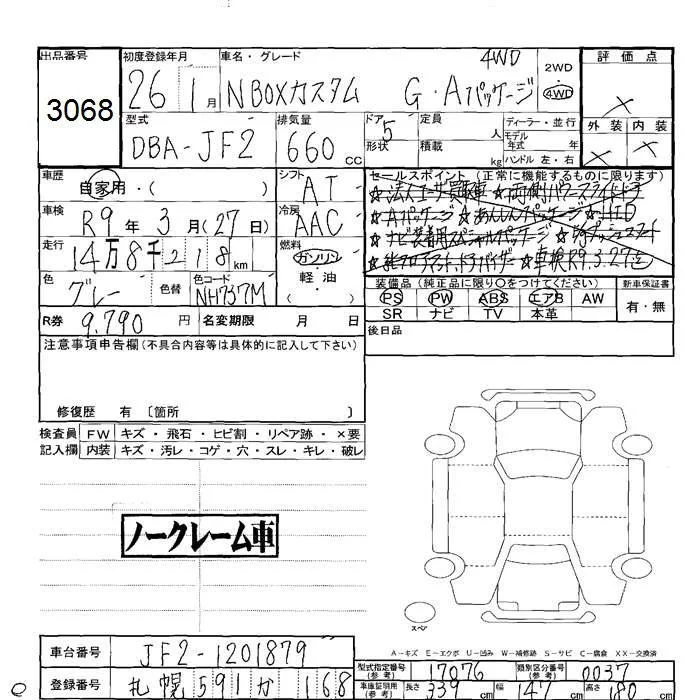 出品番号 初度登録年月 車名・グレード 4WD 2WD 評価点
3068 26 1月 NBOXカスタム G・Aパッケージ 4WD ×
型式 排気量 ドア 定員 ディーラー・並行 外装 内装
DBA-JF2 660cc 5 人 モデル年式 年 × ×
形状 積載 kg ハンドル 左・右
車歴 自家用・( ) シフト AT セールスポイント (正常に機能するものに限ります)
☆法人ユーザー買取車 ☆両側パワースライドドア
車検 R9年3月(27日) 冷房 AAC ☆Aパッケージ ☆あんしんパッケージ ☆HID
☆ナビ装着用スペシャルパッケージ
走行 14万8千218km 燃料 ガソリン 軽・油 ( )
☆純フロアマット、ドアバイザー ☆車検R9.3.27迄
色 グレー 色替 色コード NH737M 装備品 (純正品に限り○をつけてください) 新車保証書
PS PW ABS エアB AW 有・無
R券 9,790円 名変期限 月 日 SR ナビ TV 本革
後日品
注意事項申告欄(不具合内容等は具体的に記入して下さい)
修復歴 有 〔箇所 〕
検査員 FW キズ・飛石・ヒビ割・リペア跡・×要
記入欄 内装 キズ・汚レ・コゲ・穴・スレ・キレ・破レ
ノークレーム車
スペア
A-キズ E-エクボ U-凹み W-補修跡 S-サビ C-腐食 XX-交換済
車台番号 JF2-1201879
型式指定番号(参考) 17076 類別区分番号(参考) 0037
登録番号 札幌591か168
車庫証明用(参考) 長さ 339cm 幅 147cm 高さ 180cm